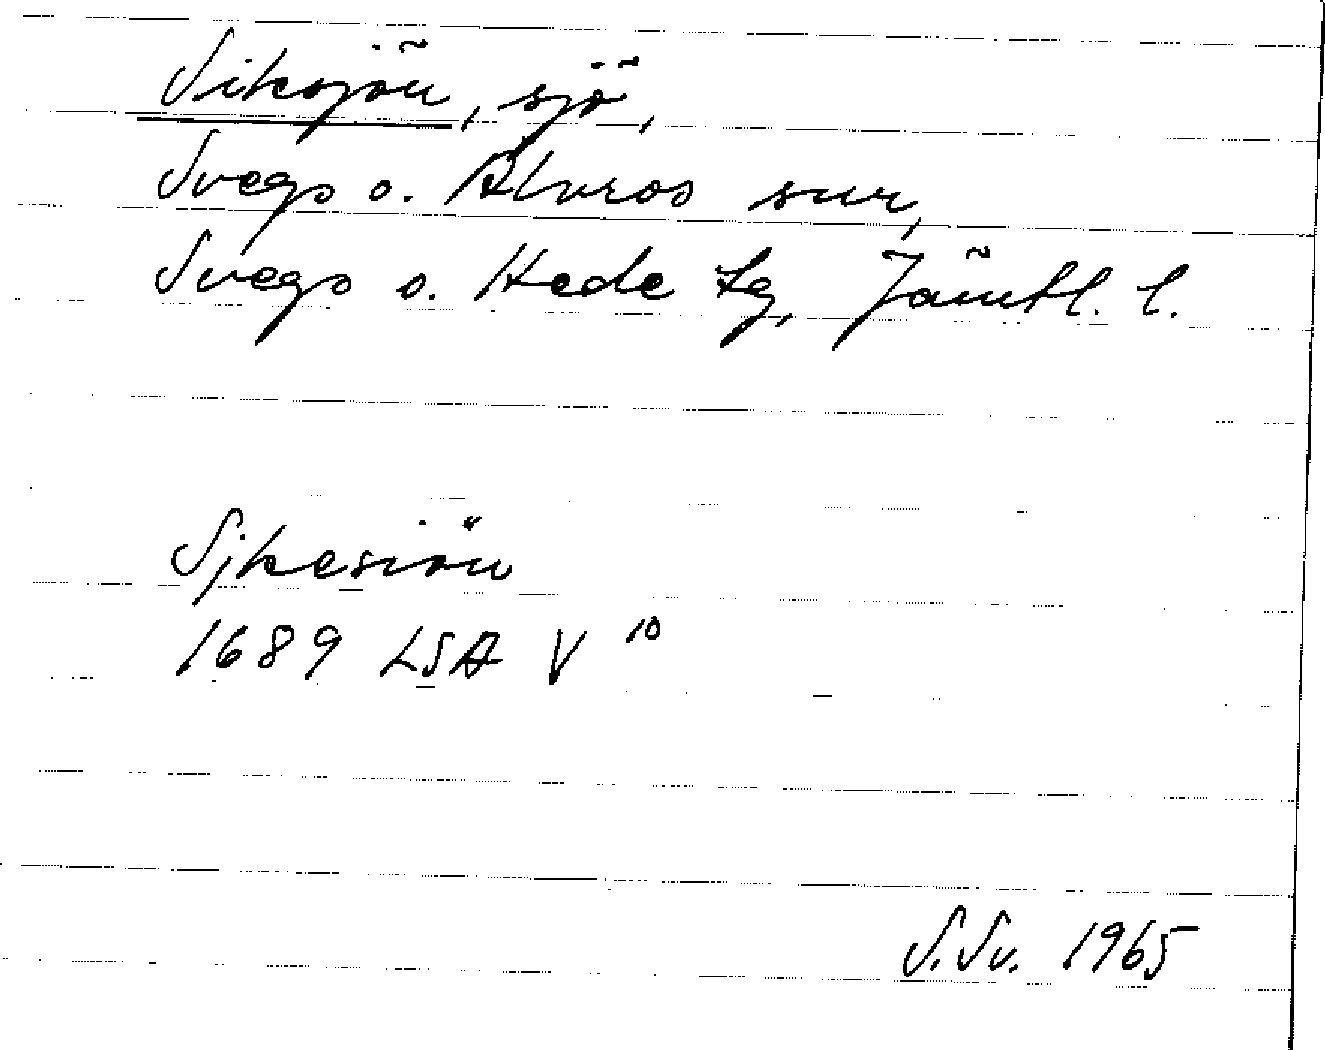 Siksjön, sjö,
Svegs o. Älvros snr,
Svegs o. Hede tg, Jämtl. l.
Sjkesiön
1689 LSA V 10
S. Sv. 1965